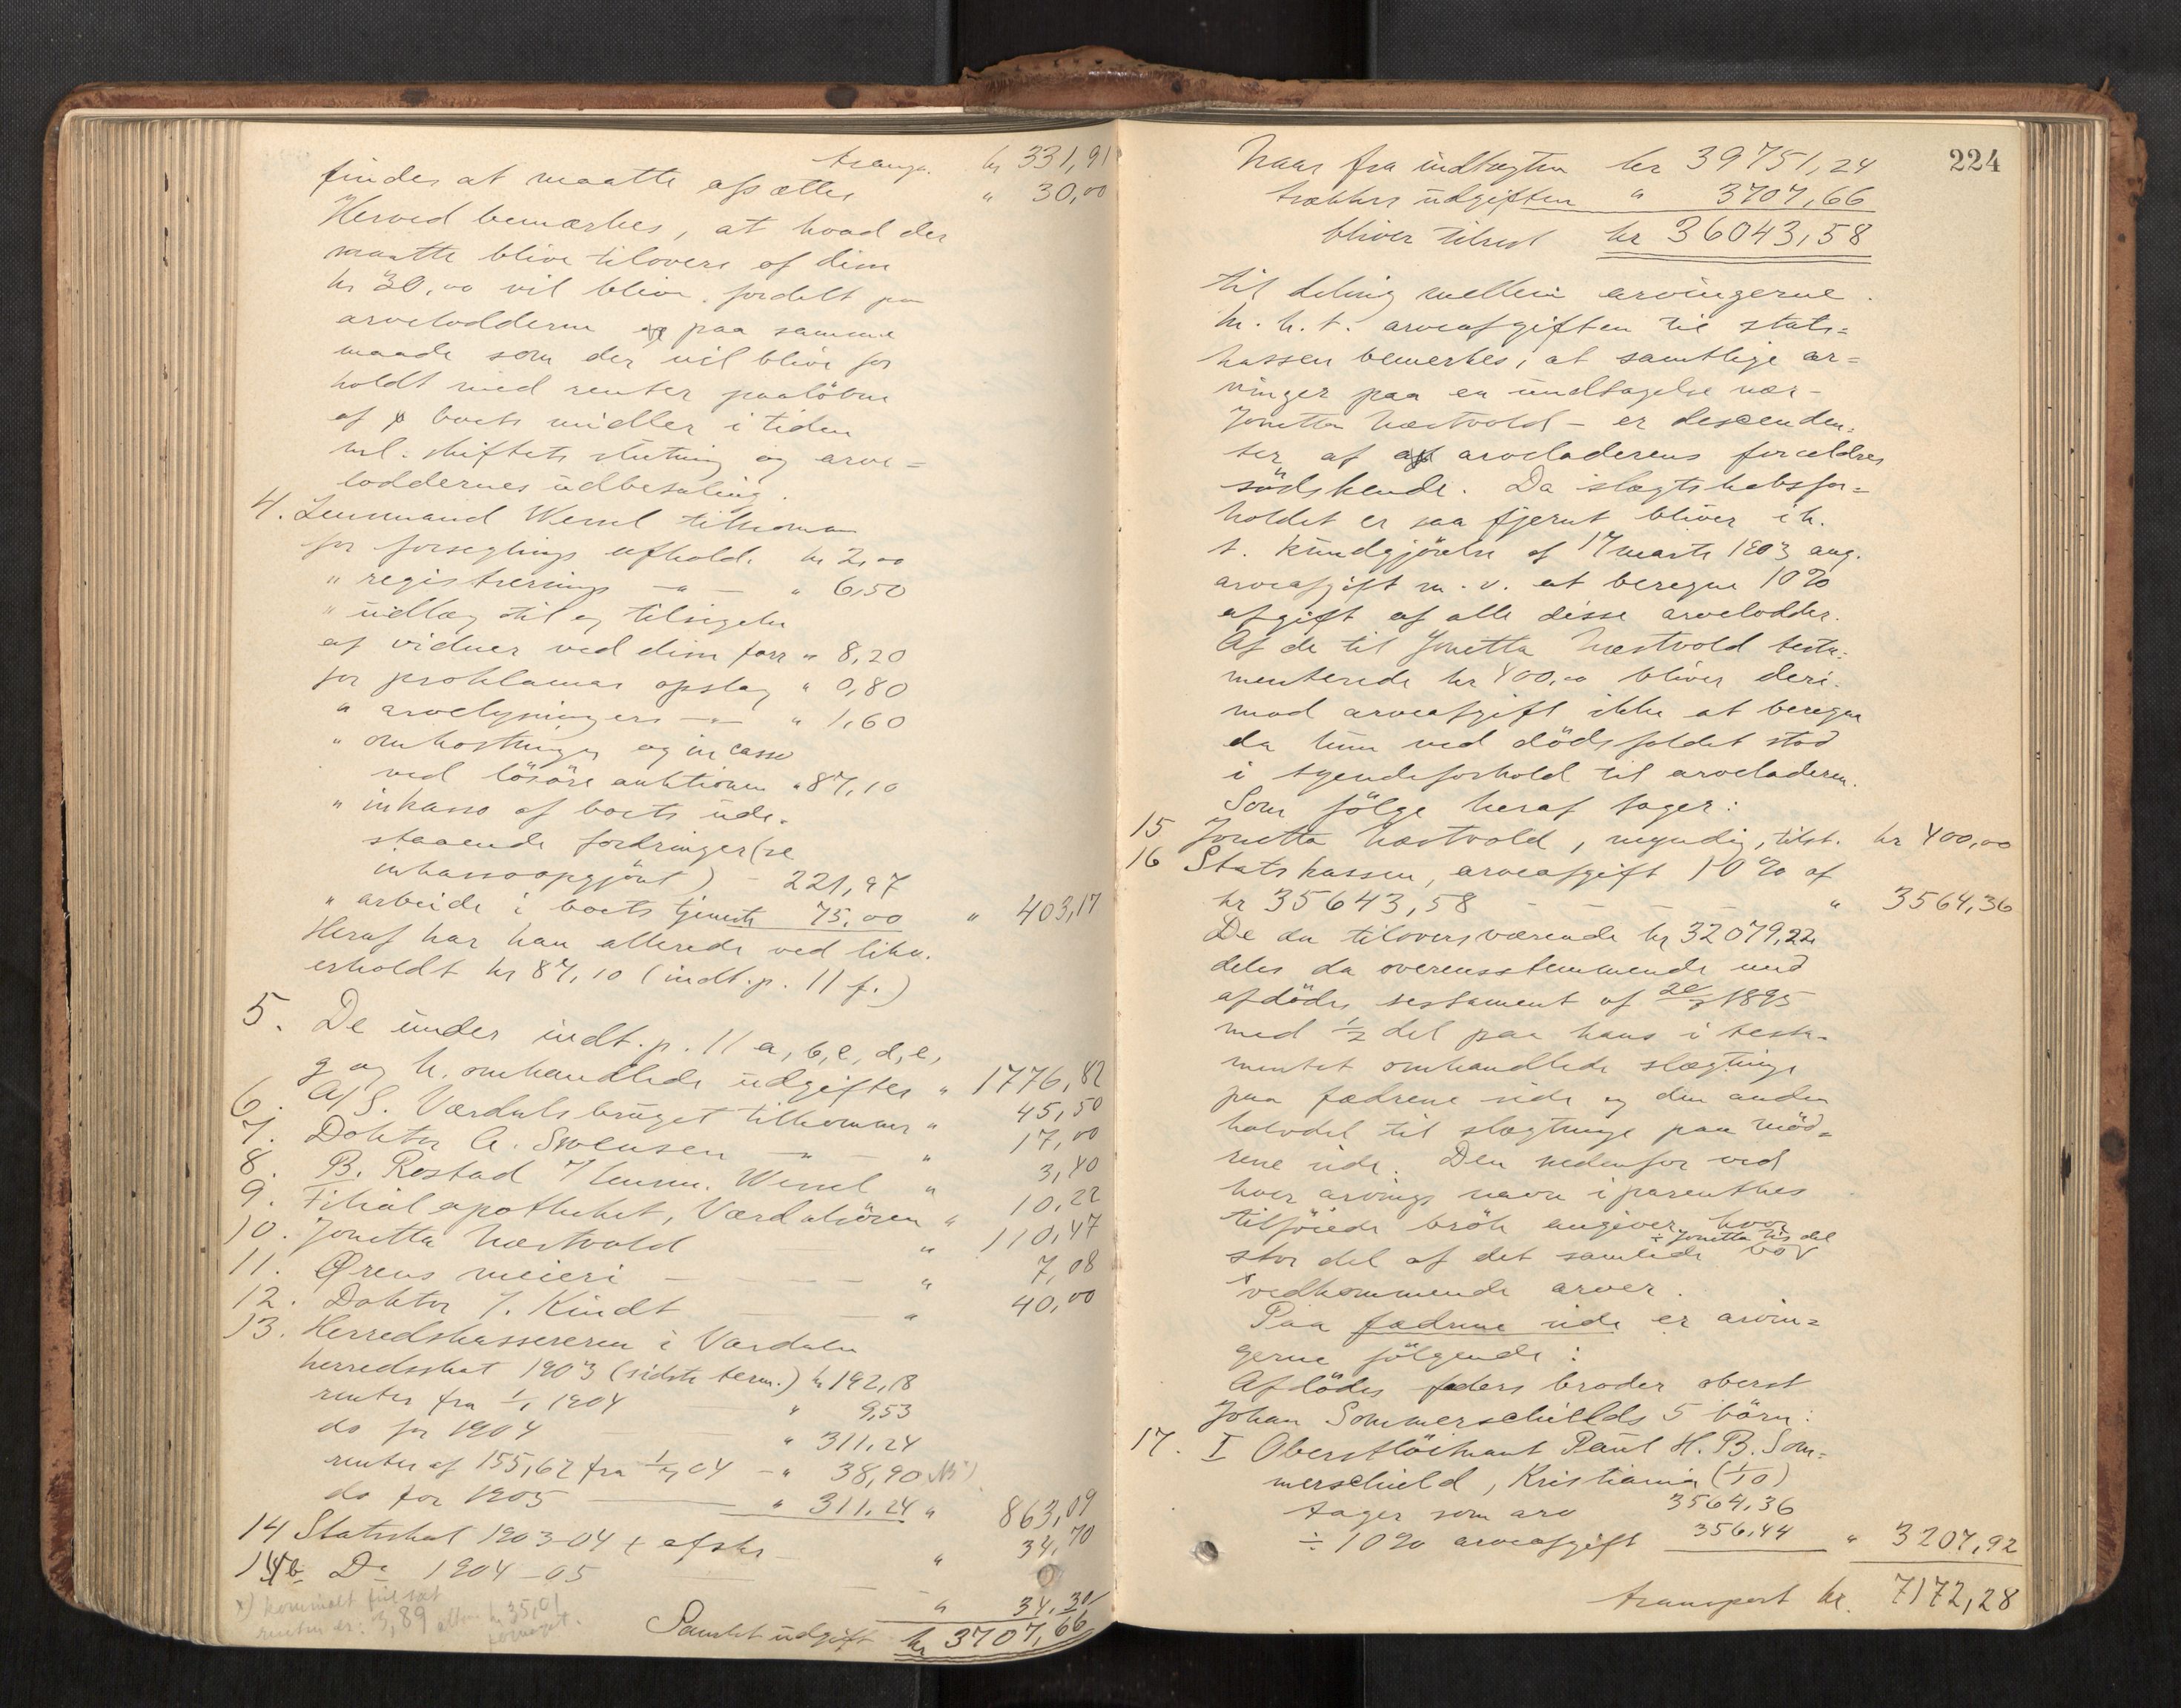 transp. kr 331,91
findes at maatte afsættes " 30,00
Herved bemærkes, at hvad der
maatte blive tilovers af disse
kr 30,00 vil blive fordelt paa
arvelodderne paa samme
maade som der vil blive for
holdt med renter paaløbne
af boets midler i tiden
ml. skiftets slutning og arve=
loddernes udbetaling.
4. Lensmand Wessel tilkommer
for forseglings afhold. kr 2,00
" registrerings —"— " 6,50
" udlæg til og tilsigelse
af vidner ved disse forr " 8,20
for proklamas opslag " 0,80
" arvelysningers —"— " 1,60
" omkostninger og incasso
ved lösöre auktionen " 87,10
" inkasso af boets ude-
staaende fordringer (se
inkassoopgjöret) - 221,97
" arbeide i boets tjeneste 75,00 " 403,17
Heraf har han allerede ved likv.
erholdt kr 87,10 (indt. p. 11 f.)
5. De under indt. p. 11 a, b, c, d, e,
g og h. omhandlede udgifter " 1776,82
6. A/S. Værdalsbruget tilkommer " 45,50
7. Doktor A. Svensen —"— " 17,00
8. B. Rostad / lensm. Wessel " 3,40
9. Filialapotheket, Værdalsören " 10,22
10. Jonetta Næstvold " 110,47
11. Ørens meieri — " 7,08
12. Doktor J. Kindt " 40,00
13. Herredskassereren i Værdalen
herredsskat 1903 (sidste term.) kr 192,18
renter fra 1/1 1904 " 9,53
do for 1904 " 311,24
renter af 155,62 fra 1/7 04 - " 38,90 x)
do for 1905 — " 311,24 " 863,09
14 Statsskat 1903-04 + afskr — " 34,70
14b. Do 1904-05 — " 34,30
x) kommet feil
renten er: 3,89 altsaa kr 35,01
formeget.
Samlet udgift kr 3707,66
224
Naar fra indtægten kr 39751,24
trækkes udgiften " 3707,66
bliver tilrest kr 36043,58
til deling mellem arvingerne.
M. h. t. arveafgiften til stats=
kassen bemerkes, at samtlige ar=
vinger paa en undtagelse nær -
Jonetta Næstvold - er descenden=
ter af arveladerens forældres
södskende. Da slægtskabsfor=
holdet er saa fjernt bliver i h.
t. kundgjörelse af 17 marts 1903 ang.
arveafgift m. v. at beregne 10%
afgift af alle disse arvelodder.
Af de til Jonetta Næstvold testa=
menterede kr 400,00 bliver deri-
mod arveafgift ikke at beregne
da hun ved dödsfaldet stod
i tyendeforhold til arveladeren.
Som fölge heraf tager:
15 Jonetta Næstvold, myndig, tilst. kr 400,00
16 Statskassen, arveafgift 10% af
kr 35643,58 - - - - " 3564,36
De da tiloversværende kr 32079,22
deles da overensstemmende med
afdödes testament af 1895
med 1/2 del paa hans i testa-
mentet omhandlede slægtninge
paa fædrene side og den anden
halvdel til slægtninge paa möd=
rene side. Den nedenfor ved
hver arvings navn i parenthes
tilföiede brök angiver, hvor
÷ Jonetta N's del
stor del af det samlede bo
vedkommende arver.
Paa fædrene side er arvin=
gerne fölgende:
Afdödes faders broder oberst
Johan Sommerschields 5 börn:
17. I Oberstlöitnant Paul H. B. Som=
merschield, Kristiania (1/10)
tager som arv 3564,36
÷ 10% arveafgift 356,44 " 3207,92
transport kr. 7172,28